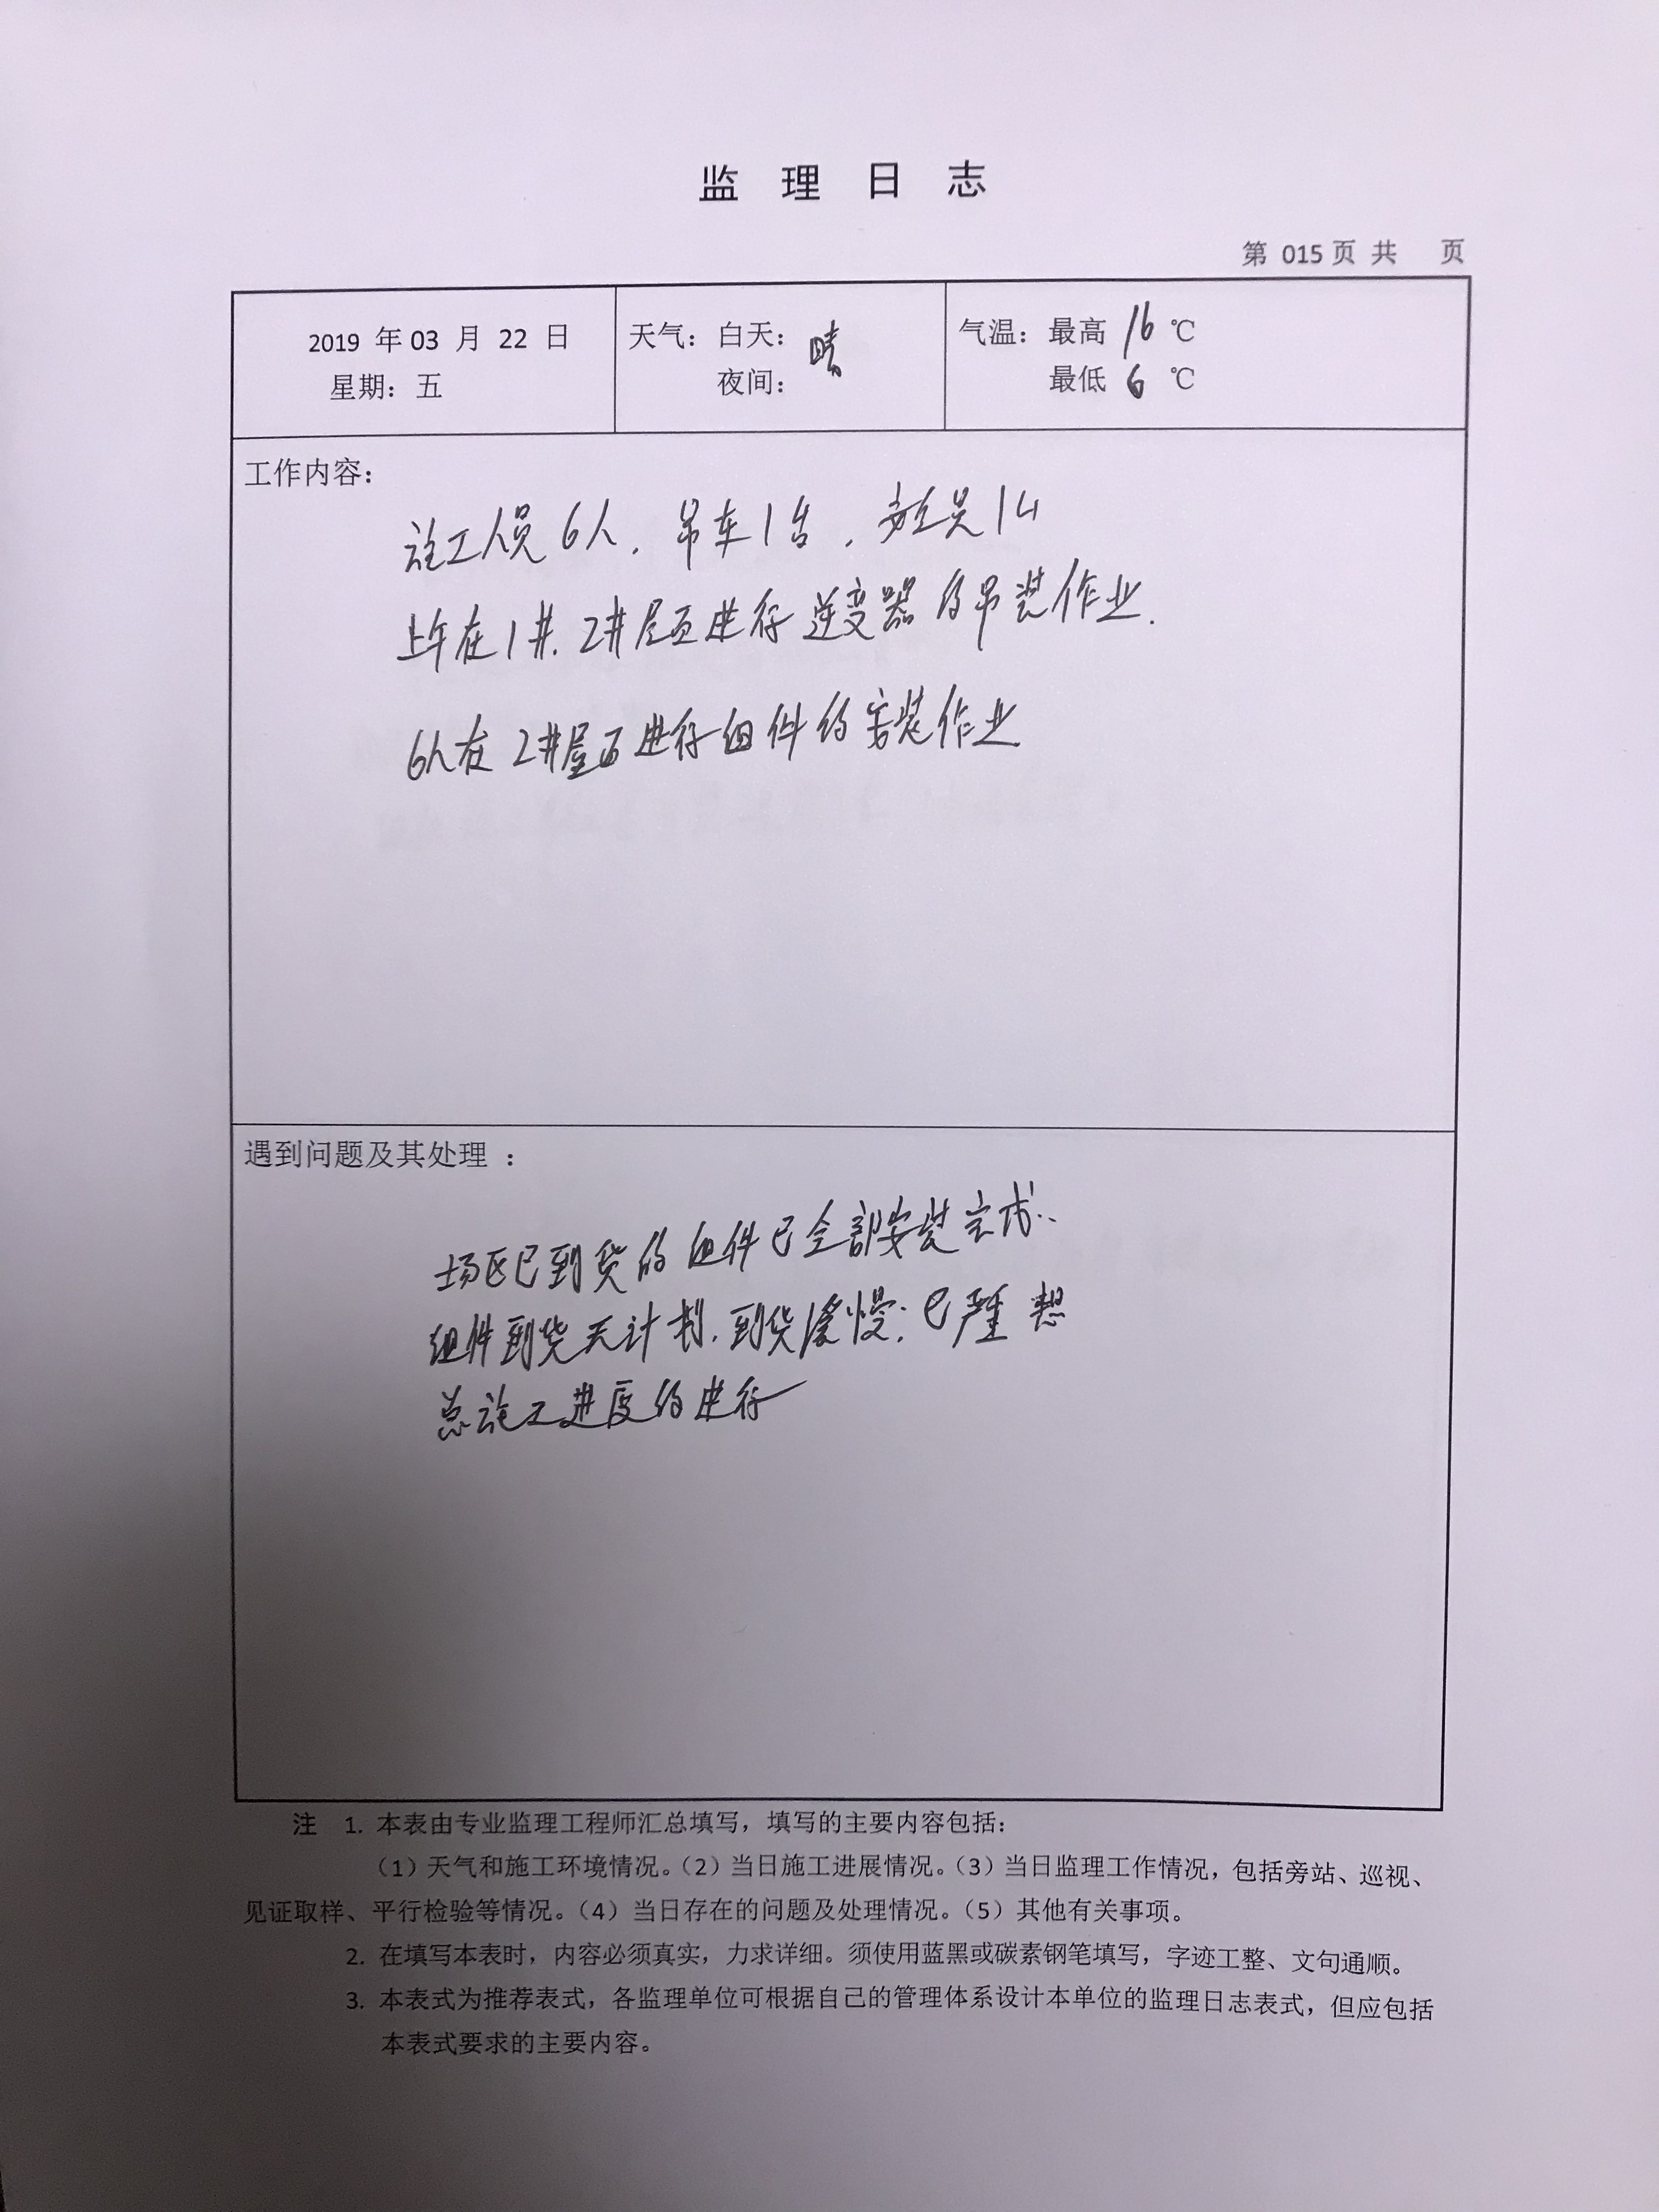 监 理 日 志
第 015 页 共 页
2019 年 03 月 22 日
星期：五
天气：白天：晴
夜间：
气温：最高 16 ℃
最低 6 ℃
工作内容：
施工人员6人，吊车1台，安全员1人
上午在1#、2#屋面进行逆变器的吊装作业.
6人在2#屋面进行组件的安装作业
遇到问题及其处理 ：
场区已到货的组件已全部安装完成..
组件到货无计划，到货缓慢；已严重
总施工进度的进行
注 1. 本表由专业监理工程师汇总填写，填写的主要内容包括：
（1）天气和施工环境情况。（2）当日施工进展情况。（3）当日监理工作情况，包括旁站、巡视、
见证取样、平行检验等情况。（4）当日存在的问题及处理情况。（5）其他有关事项。
2. 在填写本表时，内容必须真实，力求详细。须使用蓝黑或碳素钢笔填写，字迹工整、文句通顺。
3. 本表式为推荐表式，各监理单位可根据自己的管理体系设计本单位的监理日志表式，但应包括
本表式要求的主要内容。